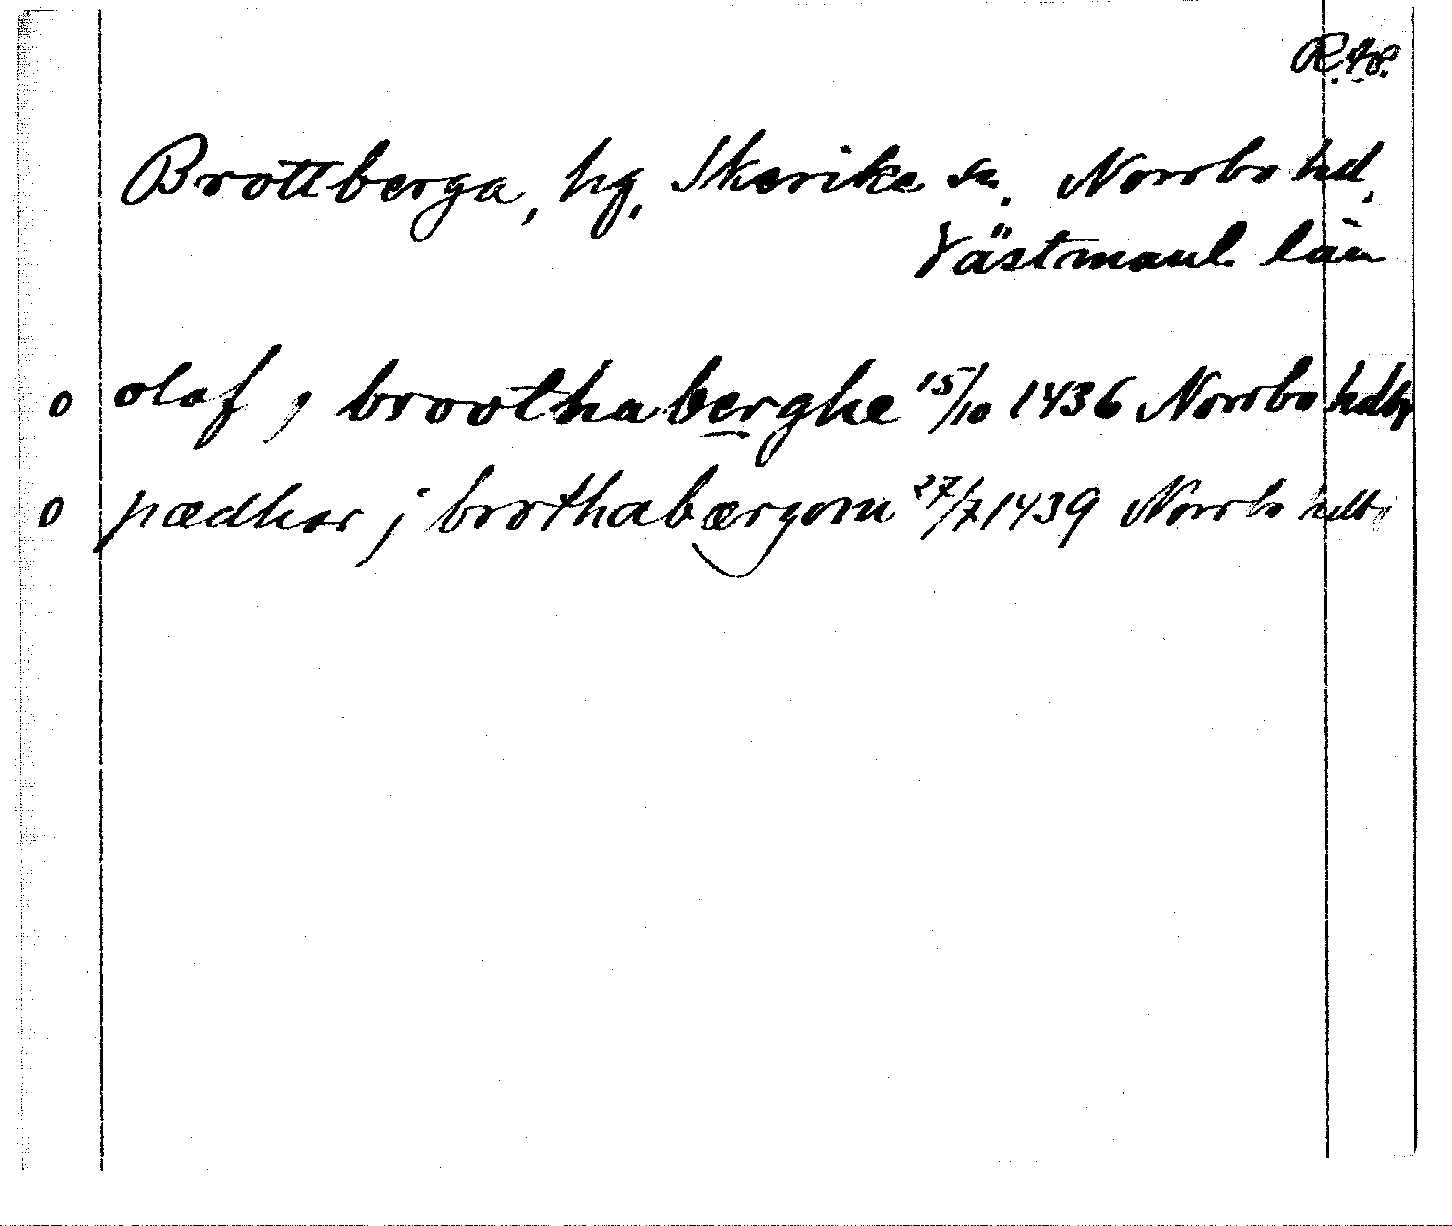 Brottberga, hg, Skerike sn. Norrbo hd,
Västmanl. län
o olaf j broothaberghe 15/10 1436 Norrbo hdby
o pædhar j brothabærgom 27/7 1439 Norrbo hdb